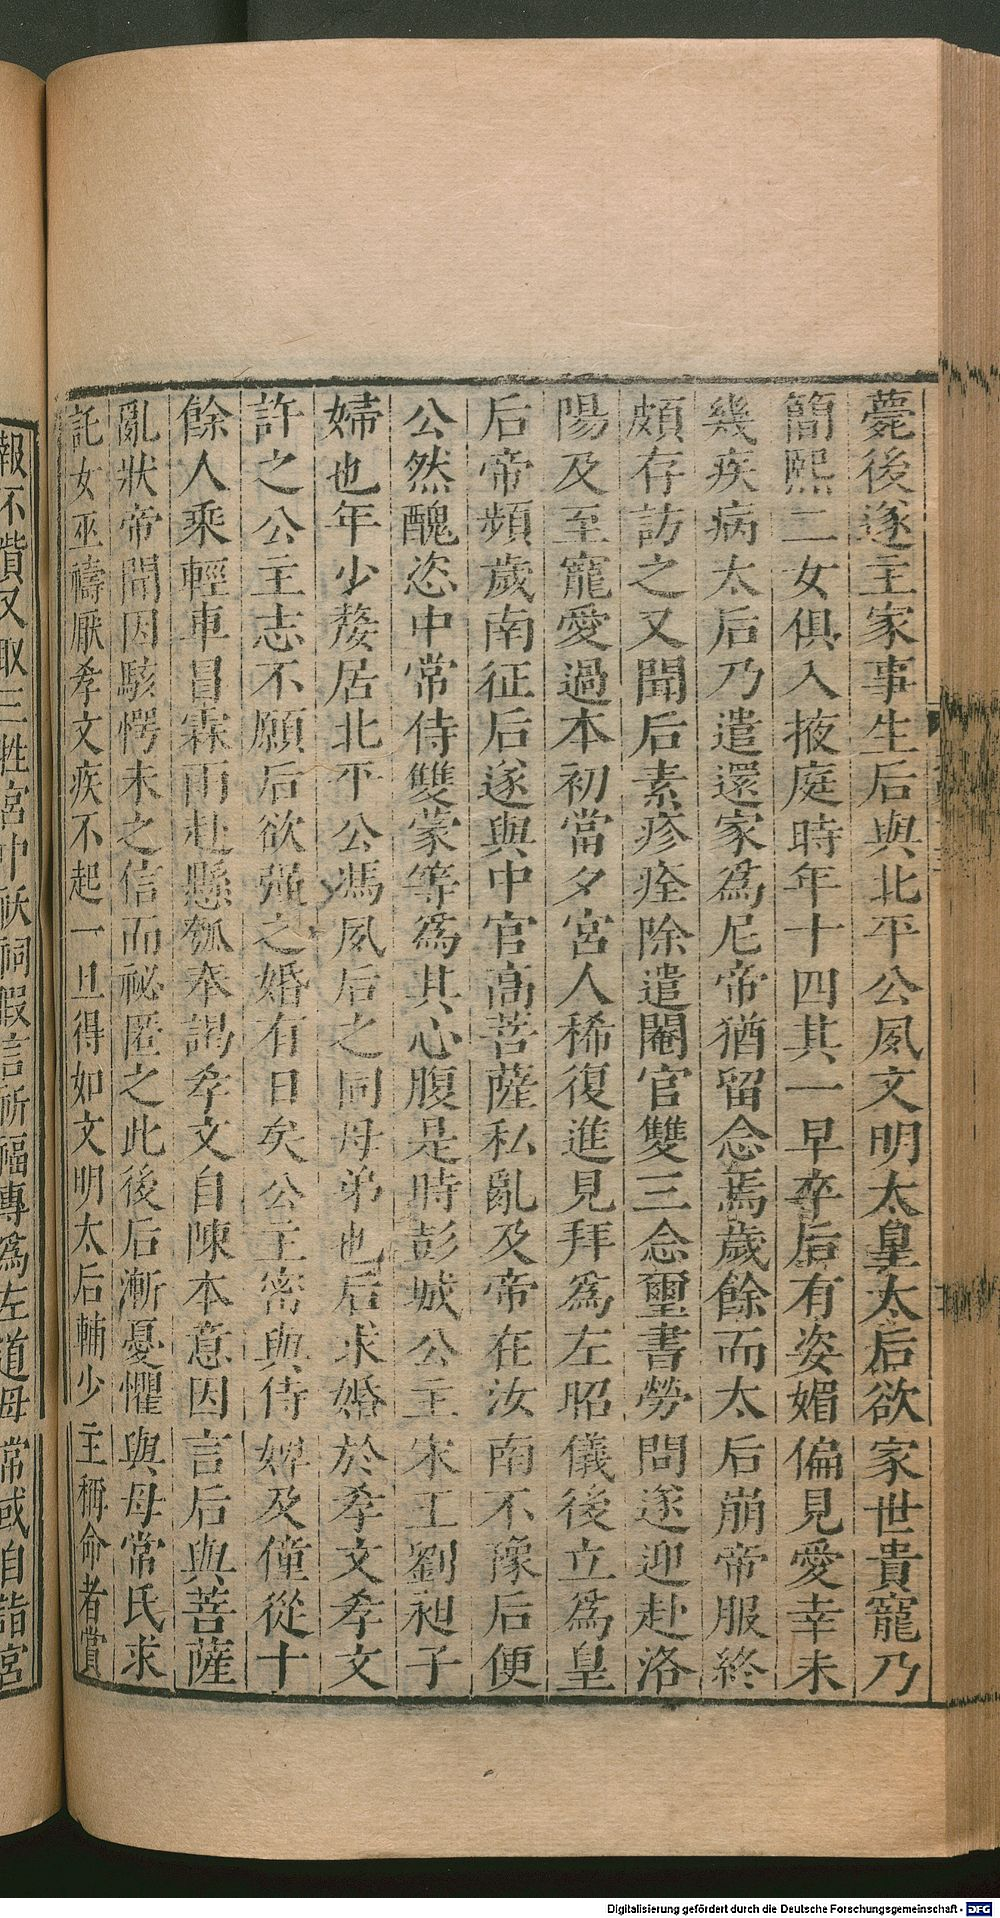 薨後遂主家事生后與北平公夙文明太皇太后欲家世貴寵乃
簡熙二女俱入掖庭時年十四其一早卒后有姿媚偏見愛幸未
幾疾病太后乃遣還家爲尼帝猶留念焉歲餘而太后崩帝服終
頗存訪之又聞后素疹痊除遣閹官雙三念璽書勞問遂迎赴洛
陽及至寵愛過本初當夕宮人稀復進見拜爲左昭儀後立爲皇
后帝頻歲南征后遂與中官高菩薩私亂及帝在汝南不豫后便
公然醜恣中常侍雙蒙等爲其心腹是時彭城公主宋王劉昶子
婦也年少嫠居北平公馮夙后之同母弟也后求婚於孝文孝文
許之公主志不願后欲强之婚有日矣公主密與侍婢及僮從十
餘人乘輕車冒霖雨赴懸瓠奉謁孝文自陳本意因言后與菩薩
亂狀帝聞因駭愕未之信而祕匿之此後后漸憂懼與母常氏求
託女巫禱厭孝文疾不起一旦得如文明太后輔少主稱命者賞
報不貲又取三牲宮中祅祠假言祈福專爲左道母常或自詣宮
Digitalisierung gefördert durch die Deutsche Forschungsgemeinschaft - DFG